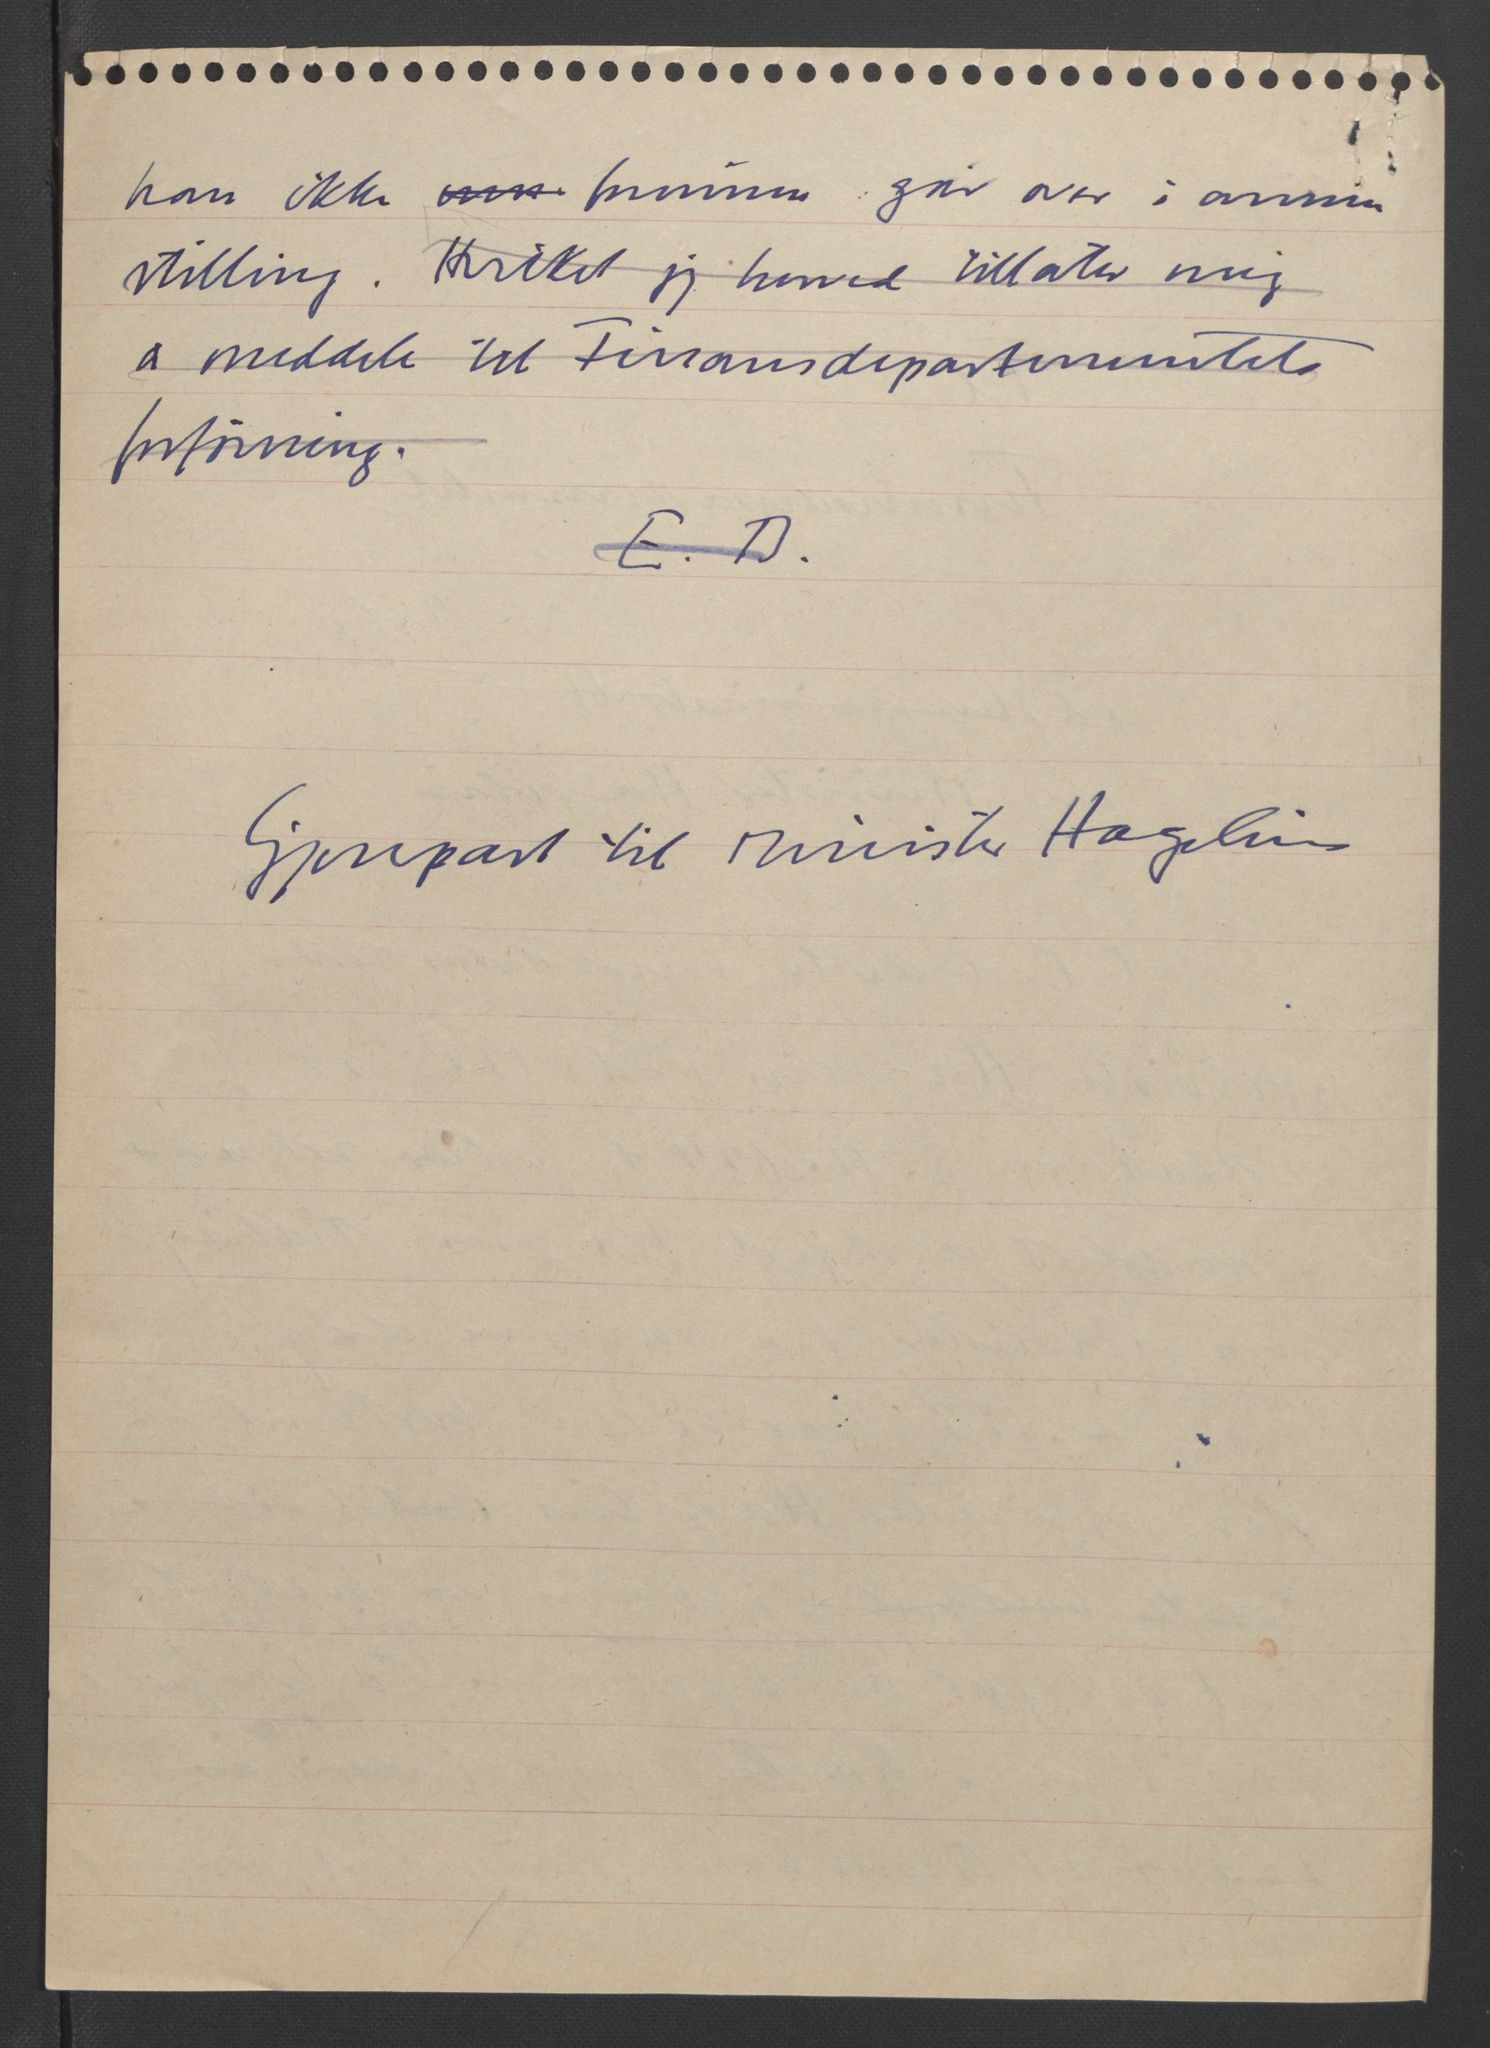 han ikke forinnen går over i annen
stilling. Hvilket jeg herved tillater mig
a meddele til Finansdepartementets
forføining.
E. D.
Gjenpart til minister Hagelin